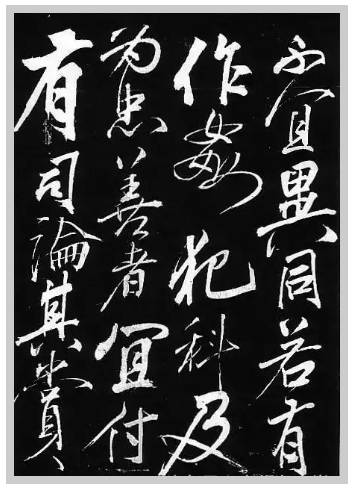 不宜異同若有
作姦犯科及
為忠善者宜付
有司論其賞